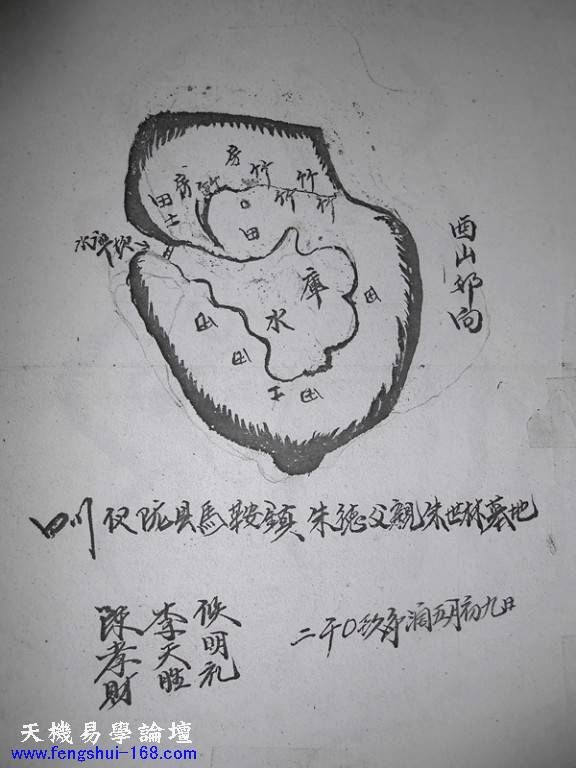 房
房 竹 竹 竹
田 竹 竹
土 田
水
庫
水
田
田
田
土 田
酉山卯向
四川仪陇县馬鞍镇朱德父親朱世林墓地
侯明礼
李天胜
陳孝財
二千0玖年潤五月初九日
天機易學論壇
www.fengshui-168.com